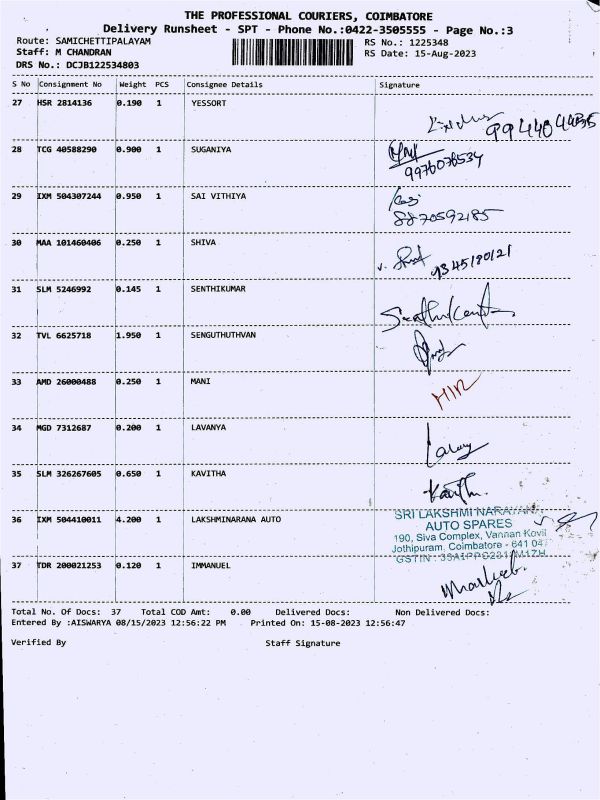 THE PROFESSIONAL COURIERS, COIMBATORE
Delivery Runsheet - SPT - Phone No.:0422-3505555 - Page No.:3
Route: SAMICHETTIPALAYAM RS No.: 1225348
Staff: M CHANDRAN RS Date: 15-Aug-2023
DRS No.: DCJB122534803
S No Consignment No Weight PCS Consignee Details Signature
27 HSR 2814136 0.190 1 YESSORT
28 TCG 40588290 0.900 1 SUGANIYA
9976076534
29 IXM 504307244 0.950 1 SAI VITHIYA
8870592185
30 MAA 101460406 0.250 1 SHIVA
31 SLM 5246992 0.145 1 SENTHIKUMAR
32 TVL 6625718 1.950 1 SENGUTHUTHVAN
33 AMD 26000488 0.250 1 MANI
34 MGD 7312687 0.200 1 LAVANYA
35 SLM 326267605 0.650 1 KAVITHA
36 IXM 504410011 4.200 1 LAKSHMINARANA AUTO
SRI LAKSHMI NARAYANA
AUTO SPARES
190, Siva Complex, Vannan Kovil
Jothipuram, Coimbatore - 641 047
37 TDR 200021253 0.120 1 IMMANUEL
Total No. Of Docs: 37 Total COD Amt: 0.00 Delivered Docs: Non Delivered Docs:
Entered By :AISWARYA 08/15/2023 12:56:22 PM Printed On: 15-08-2023 12:56:47
Verified By Staff Signature